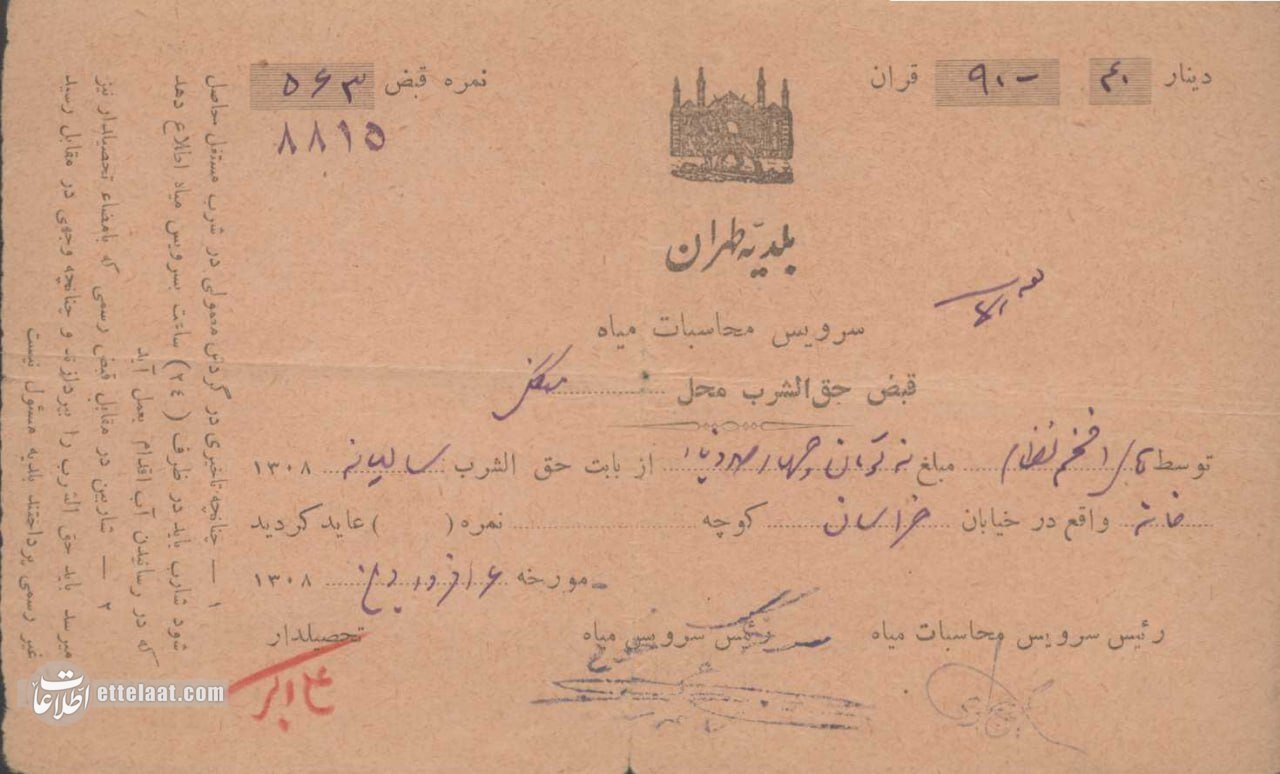 دینار ۴۰ ۹۰- قران
نمره قبض ۵۶۳
۸۸۱۵
بلدیّه طهران
سرویس محاسبات میاه
قبض حق الشرب محل
توسط آقای افخم نظام مبلغ نه تومان و چهار صد دینار از بابت حق الشرب سالیانه ۱۳۰۸
خانه واقع در خیابان خراسان کوچه نمره ( ) عاید گردید
مورخه ۶ فروردین ۱۳۰۸
رئیس سرویس محاسبات میاه رئیس سرویس میاه تحصیلدار
علی اکبر
۱ — چنانچه تاخیری در گردش معمولی در شرب مستقل حاصل
شود شارب باید در ظرف (۲٤) ساعت بسرویس میاه اطلاع دهد
که در رسانیدن آب اقدام بعمل آید
۲ — شاربین در مقابل قبض رسمی که بامضاء تحصیلدار نیز
میرسد باید حق الشرب را بپردازند و چنانچه وجهی در مقابل رسید
غیر رسمی پرداختند بلدیه مسئول نیست
اطلاعات ettelaat.com